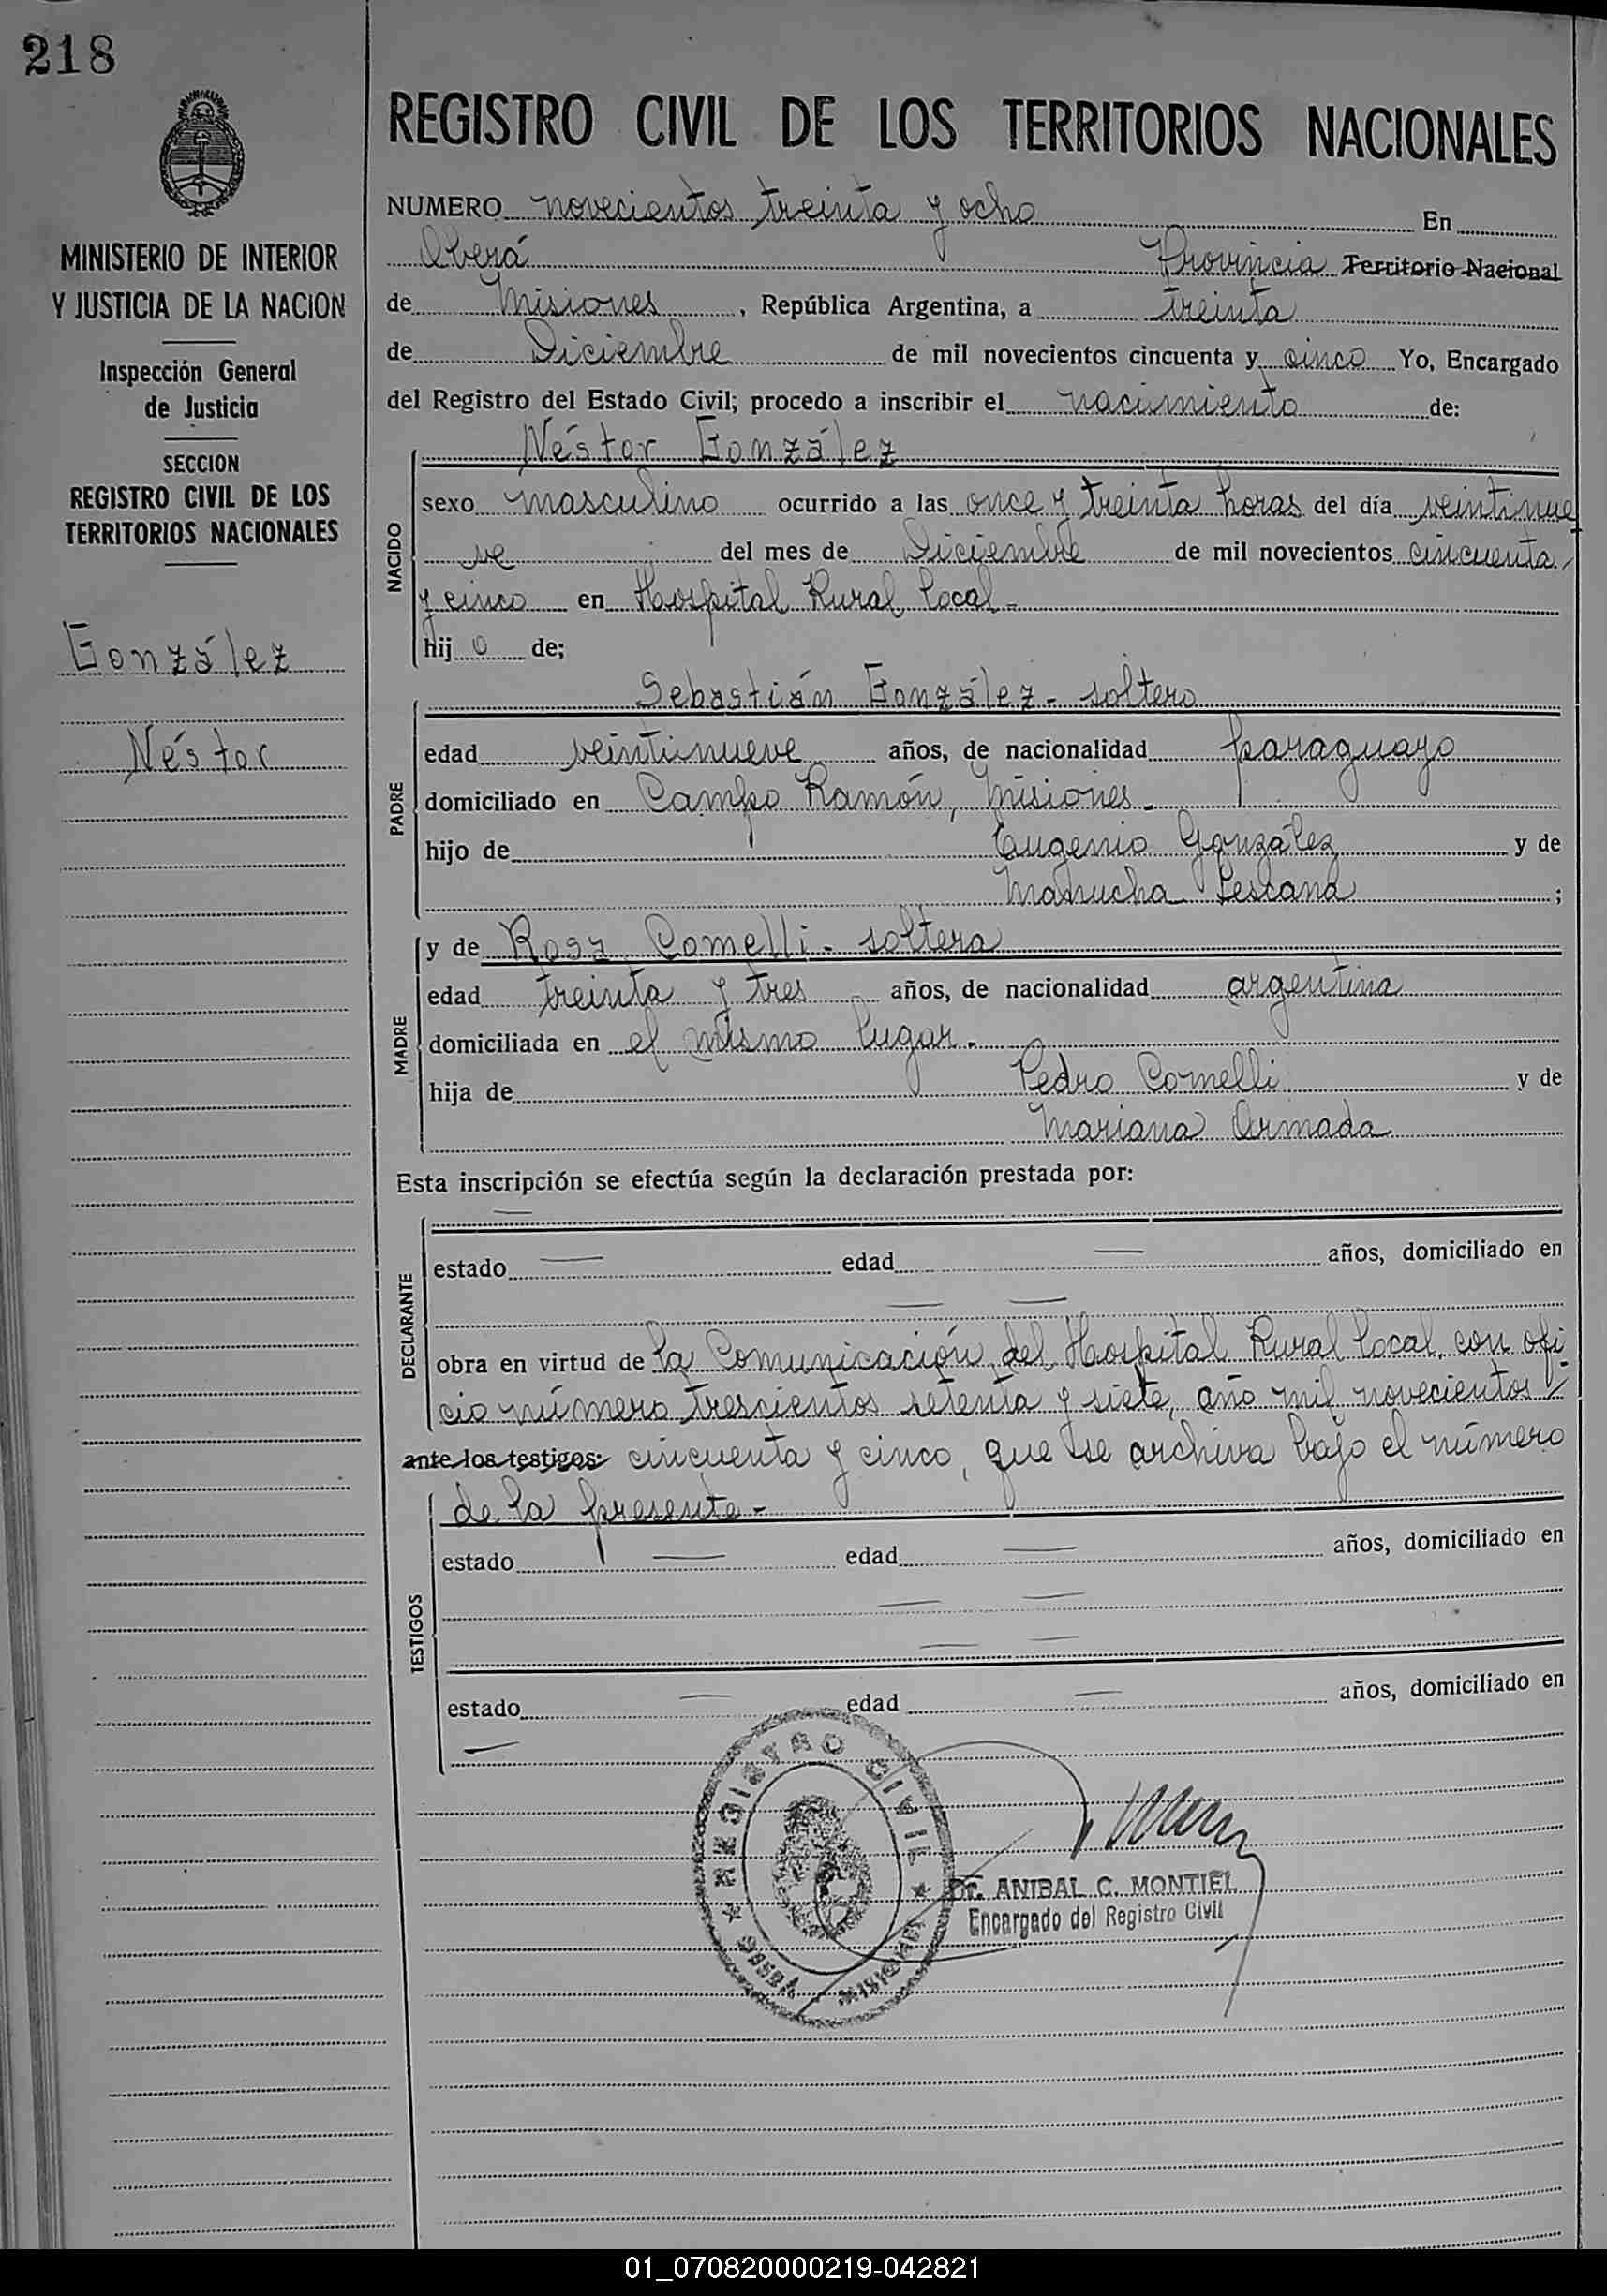 218
MINISTERIO DE INTERIOR
Y JUSTICIA DE LA NACION
Inspección General
de Justicia
SECCION
REGISTRO CIVIL DE LOS
TERRITORIOS NACIONALES
González
Néstor
REGISTRO CIVIL DE LOS TERRITORIOS NACIONALES
NUMERO novecientos treinta y ocho En
Oberá Provincia Territorio Nacional
de Misiones, República Argentina, a treinta
de Diciembre de mil novecientos cincuenta y cinco Yo, Encargado
del Registro del Estado Civil; procedo a inscribir el nacimiento de:
NACIDO
Néstor González
sexo masculino ocurrido a las once y treinta horas del día veintinue
ve del mes de Diciembre de mil novecientos cincuenta
y cinco en Hospital Rural Local -
hij o de;
PADRE
Sebastián González - soltero
edad veintinueve años, de nacionalidad paraguayo
domiciliado en Campo Ramón, Misiones -
hijo de Eugenio González y de
;
MADRE
y de Rosa Comelli - soltera
edad treinta y tres años, de nacionalidad argentina
domiciliada en el mismo lugar -
hija de Pedro Comelli y de
Mariana Armada
Esta inscripción se efectúa según la declaración prestada por:
DECLARANTE
estado edad años, domiciliado en
obra en virtud de la Comunicación del Hospital Rural Local, con ofi
cio número trescientos setenta y siete, año mil novecientos
ante los testigos: cincuenta y cinco, que se archiva bajo el número
TESTIGOS
de la presente -
estado edad años, domiciliado en
estado edad años, domiciliado en
REGISTRO CIVIL
OBERA MISIONES
Dr. ANIBAL C. MONTIEL
Encargado del Registro Civil
01_070820000219-042821